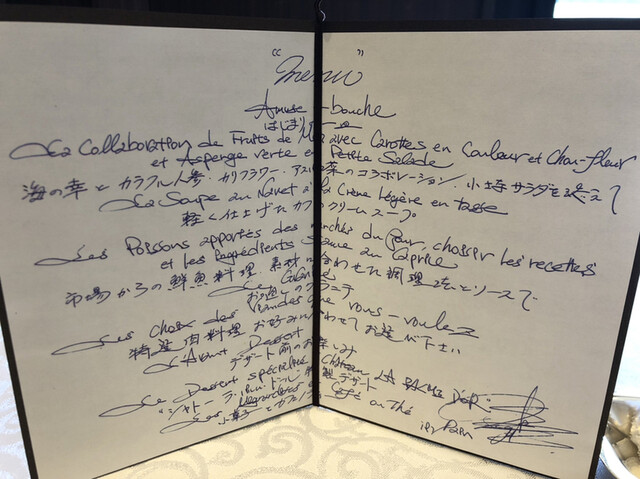 "Menu"
Amuse-bouche
はじまり
La Collaboration de Fruits de Mer avec Carottes en Couleur et Chou-fleur
et Asperge verte et Petite Salade
海の幸とカラフル人参・カリフラワー・のコラボレーション・小さなサラダを添えて
La Soupe au Navet à la Crème légère en tasse
軽く仕上げたカブのクリームスープ
Les Poissons apportés des marchés du Jour, choisir les recettes
et les Ingrédients Sauce au Caprice
市場からの鮮魚料理・素材に合わせた調理法とソースで
Le Granité
お口直しのグラニテ
Les choix des Viandes que vous-voulez
特選肉料理 お好みに合わせてお選び下さい
L'Avant Dessert
デザート前のお楽しみ
Le Dessert spécialité Château LA
"シャトー ラ 特製デザート
Les Mignardises Café ou Thé
小菓子とカフェ
Pain